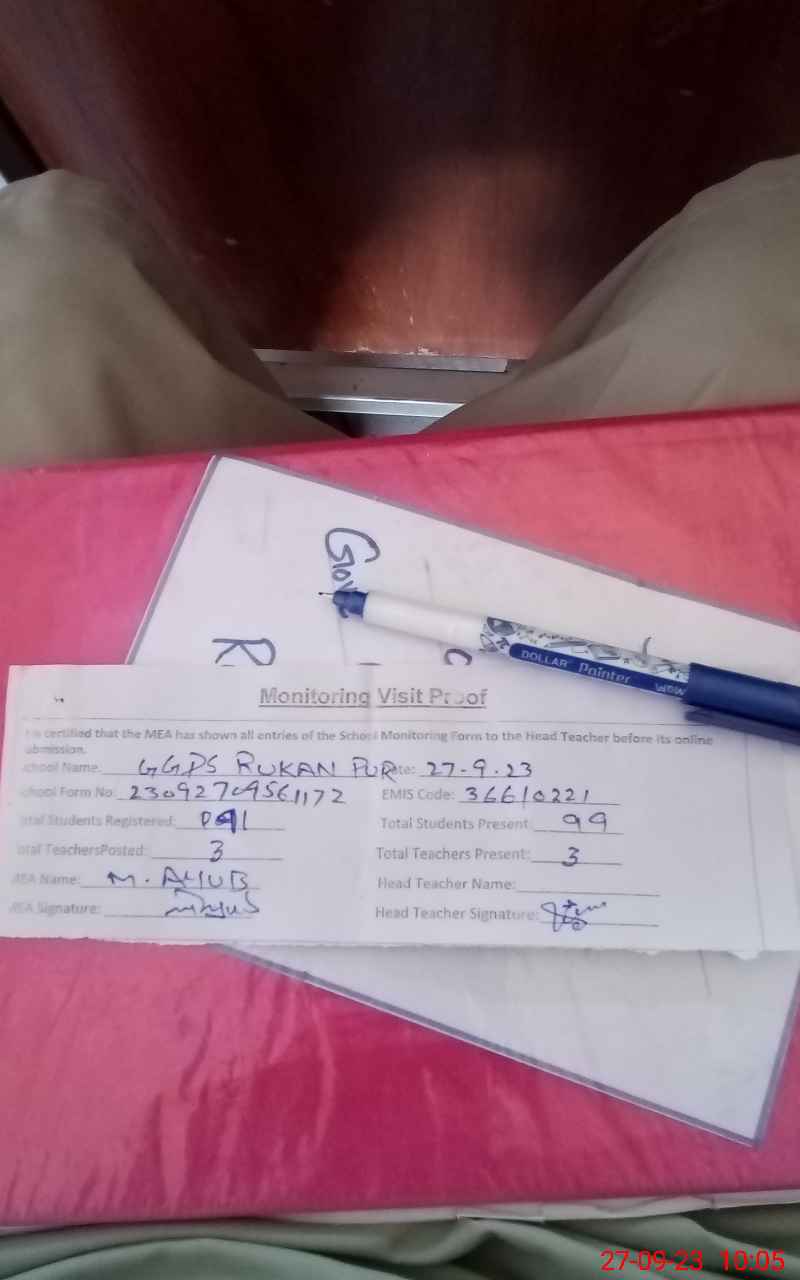 Gov
R
C
DOLLAR Pointer WOW
Monitoring Visit Proof
is certified that the MEA has shown all entries of the School Monitoring Form to the Head Teacher before its online
ubmission.
chool Name: GGPS RUKAN PUR ate: 27-9.23
chool Form No: 23092709561172 EMIS Code: 36610221
otal Students Registered: Total Students Present: 99
otal TeachersPosted: 3 Total Teachers Present: 3
MEA Name: M. AYUB Head Teacher Name:
MEA Signature: Head Teacher Signature:
27-09-23 10:05